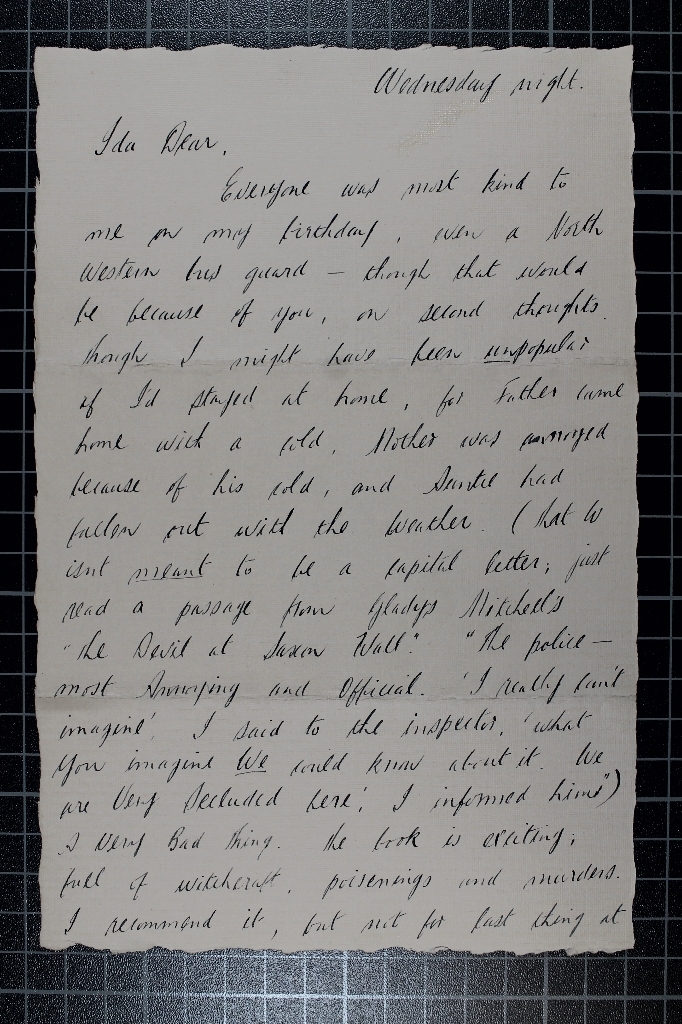 Wednesday night.
Ida Dear,
Everyone was most kind to
me on my birthday, even a North
Western bus guard – though that would
be because of you, on second thoughts.
Though I might have been unpopular
if I'd stayed at home, for Father came
home with a cold, Mother was annoyed
because of his cold, and Auntie had
fallen out with the Weather. (That W
isnt meant to be a capital letter; just
read a passage from Gladys Mitchell's
"The Devil at Saxon Wall". "The police –
most Annoying and Official. 'I really can't
imagine', I said to the inspector, 'what
You imagine We could know about it. We
are Very Secluded here', I informed him.")
A Very Bad Thing. The book is exciting;
full of witchcraft, poisenings and murders.
I recommend it, but not for last thing at